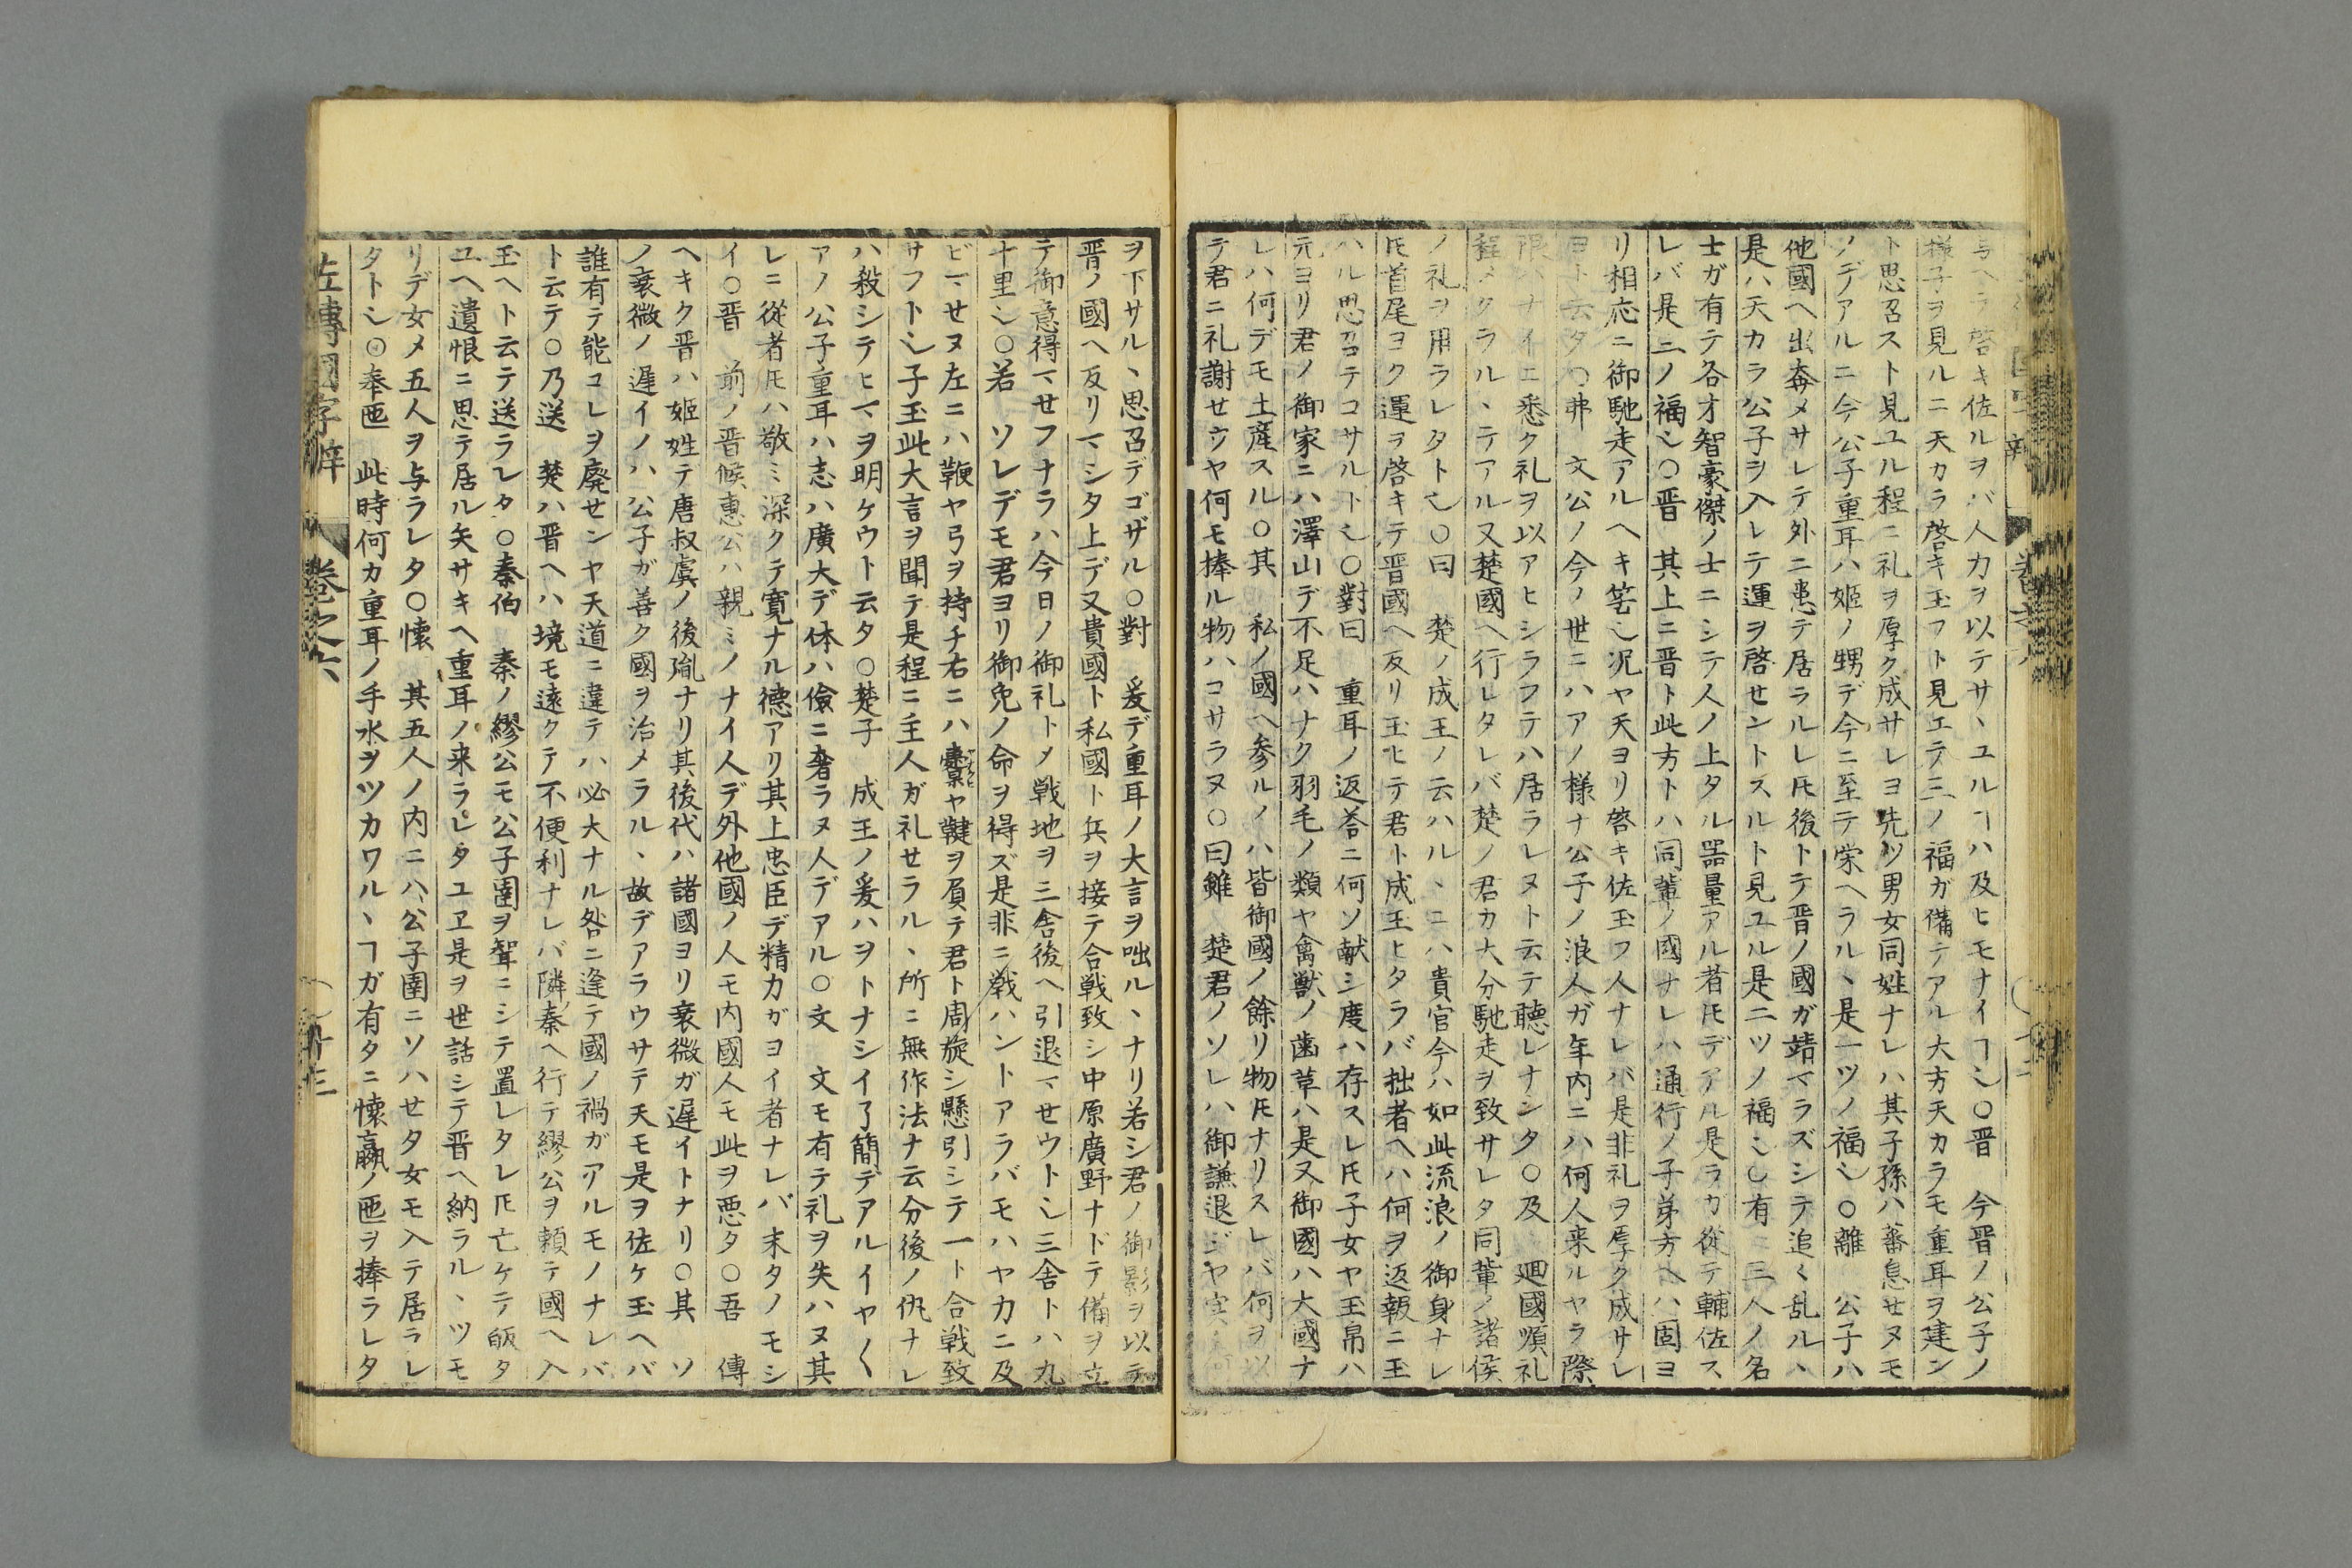 与ヘラ啓キ佐ルヲバ人力ヲ以テサヽユルヿハ及ヒモナイヿ乄〇晋　今晋ノ公子ノ
様子ヲ見ルニ天カラ啓キ玉フト見エテ三ノ福ガ備テアル大方天カラモ重耳ヲ建ン
ト思召スト見ユル程ニ礼ヲ厚ク成サレヨ先ツ男女同姓ナレハ其子孫ハ蕃息セヌモ
ノデアルニ今公子重耳ハ姫ノ甥デ今ニ至テ栄ヘラルヽ是一ツノ福乄〇離　公子ハ
他國ヘ出奔メサレテ外ニ患テ居ラルレ𪜈後トテ晋ノ國ガ靖マラズシテ追〱乱ルヽ
是ハ天カラ公子ヲ入レテ運ヲ啓セントスルト見ユル是二ツノ福乄〇有　三人ノ名
士ガ有テ各才智豪傑ノ士ニシテ人ノ上タル器量アル者𪜈デアル是ラガ從テ輔佐ス
レバ是三ノ福乄〇晋　其上ニ晋ト此方トハ同輩ノ國ナレハ通行ノ子弟方ヘハ固ヨ
リ相応ニ御馳走アルヘキ筈乄况ヤ天ヨリ啓キ佐玉フ人ナレバ是非礼ヲ厚ク成サレ
ヨト云タ〇弗　文公ノ今ノ世ニハアノ様ナ公子ノ浪人ガ年内ニハ何人来ルヤラ際
限ハナイニ悉ク礼ヲ以アヒシラフテハ居ラレヌト云テ聴レナンタ〇及　廻國順礼
程メクラルヽテアル又楚國ヘ行レタレバ楚ノ君カ大分馳走ヲ致サレタ同輩ノ諸侯
ノ礼ヲ用ラレタト乄〇曰　楚ノ成王ノ云ハルヽニハ貴官今ハ如此流浪ノ御身ナレ
𪜈首尾ヨク運ヲ啓キテ晋國ヘ反リ玉ヒテ君ト成玉ヒタラバ拙者ヘハ何ヲ返報ニ玉
ハル思召テコサルト乄〇對曰　重耳ノ返荅ニ何ソ献シ度ハ存スレ𪜈子女ヤ玉帛ハ
元ヨリ君ノ御家ニハ澤山デ不足ハナク羽毛ノ類ヤ禽獣ノ歯草ハ是又御國ハ大國ナ
レハ何デモ土産スル〇其　私ノ國ヘ参ルノハ皆御國ノ餘リ物𪜈ナリスレバ何ヲ以
テ君ニ礼謝セウヤ何モ捧ル物ハコサラヌ〇曰雖　楚君ノソレハ御謙退ジヤ
ヲ下サルヽ思召デゴザル〇對　爰デ重耳ノ大言ヲ咄ルヽナリ若シ君ノ御影ヲ以テ
晋ノ國ヘ反リマシタ上デ又貴國ト私國ト兵ヲ接テ合戦致シ中原廣野ナドテ備ヲ立
テ御意得マセフナラハ今日ノ御礼トメ戦地ヲ三舎後ヘ引退マセウト乄三舎トハ九
十里乄〇若　ソレデモ君ヨリ御免ノ命ヲ得ズ是非ニ戦ハントアラバモハヤ力ニ及
ビマセヌ左ニハ鞭ヤ弓ヲ持チ右ニハ櫜ヤ鞬ヲ負テ君ト周旋シ懸引シテ一ト合戦致
サフト乄子玉此大言ヲ聞テ是程ニ主人ガ礼セラルヽ所ニ無作法ナ云分後ノ仇ナレ
ハ殺シテヒマヲ明ケウト云タ〇楚子　成王ノ爰ハヲトナシイ了簡デアルイヤ〱
アノ公子重耳ハ志ハ廣大デ体ハ儉ニ奢ラヌ人デアル〇文　文モ有テ礼ヲ失ハヌ其
レニ從者𪜈ハ敬ミ深クテ寛ナル德アリ其上忠臣デ精力ガヨイ者ナレバ末タノモシ
イ〇晋　前ノ晋候惠公ハ親ミノナイ人デ外他國ノ人モ内國人モ此ヲ悪タ〇吾　傳
ヘキク晋ハ姫姓テ唐叔虞ノ後胤ナリ其後代ハ諸國ヨリ衰微ガ遅イトナリ〇其　ソ
ノ衰微ノ遅イノハ公子ガ善ク國ヲ治メラルヽ故デアラウサテ天モ是ヲ佐ケ玉ヘバ
誰有テ能コレヲ廃センヤ天道ニ違テハ必大ナル咎ニ逢テ國ノ禍ガアルモノナレバ
ト云テ〇乃送　楚ハ晋ヘハ境モ遠クテ不便利ナレバ隣秦ヘ行テ繆公ヲ頼テ國ヘ入
玉ヘト云テ送ラレタ〇秦伯　秦ノ繆公モ公子圉ヲ聟ニシテ置レタレ𪜈亡ケテ皈タ
ユヘ遺恨ニ思テ居ル矢サキヘ重耳ノ来ラレタユヱ是ヲ世話シテ晋ヘ納ラルヽツモ
リデ女メ五人ヲ与ラレタ〇懐　其五人ノ内ニハ公子圉ニソハセタ女モ入テ居ラレ
タト乄〇奉匜　此時何カ重耳ノ手水ヲツカワルヽヿガ有タニ懐嬴ノ匜ヲ捧ラレタ
左傳國字辯　巻之六　〇廿三